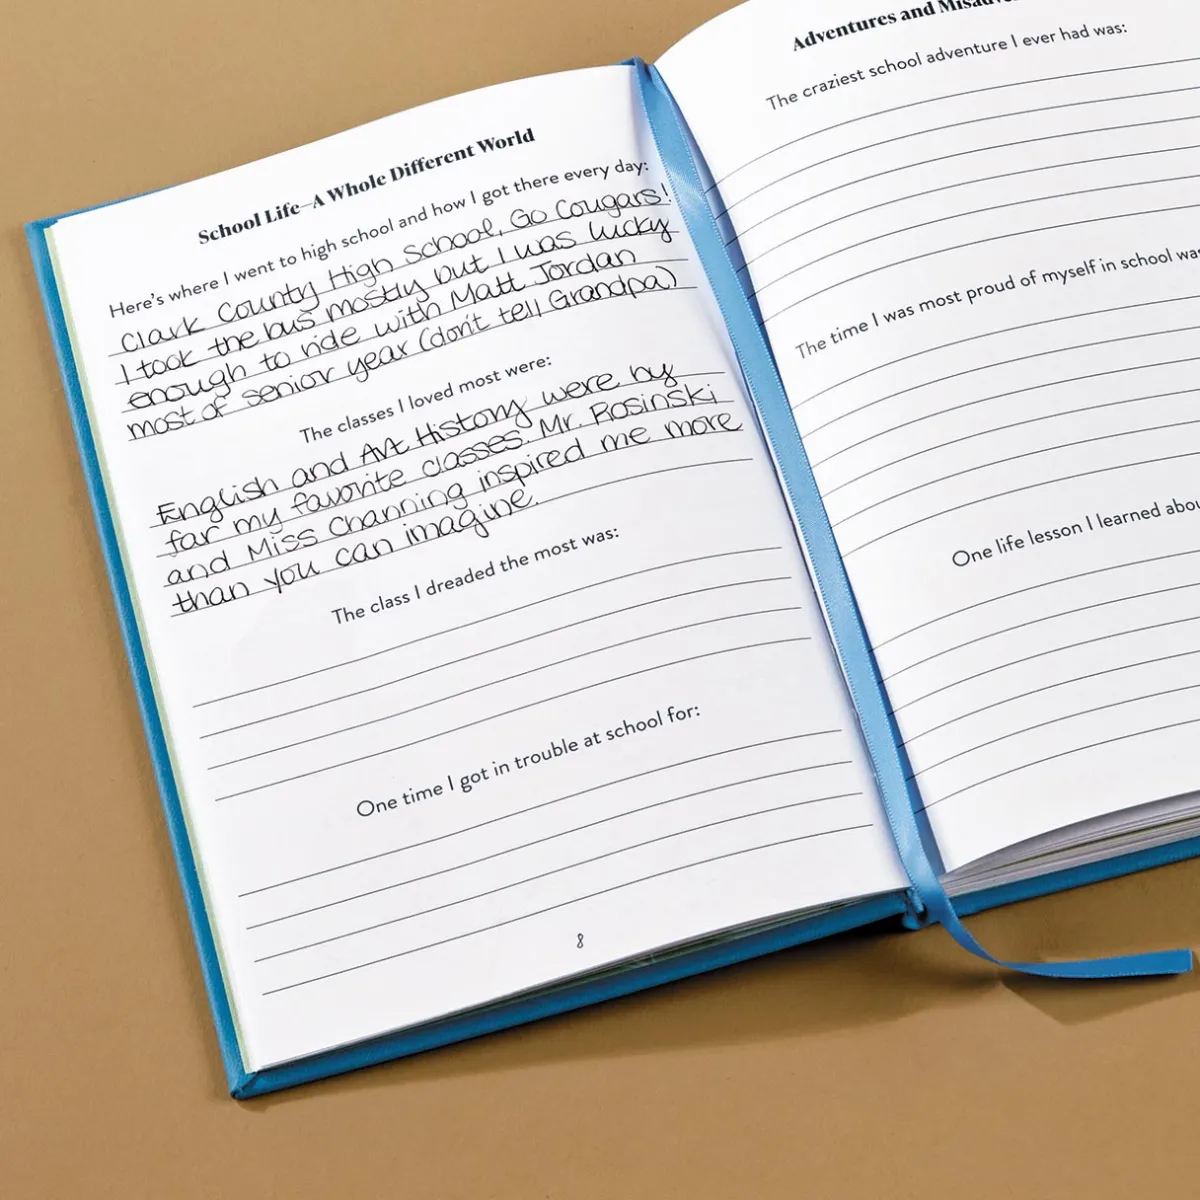 School Life—A Whole Different World
Here's where I went to high school and how I got there every day:
Clark County High School, Go Cougars!
I took the bus mostly but I was lucky
enough to ride with Matt Jordan
most of senior year (don't tell Grandpa)
The classes I loved most were:
English and Art History were by
far my favorite classes. Mr. Rosinski
and Miss Channing inspired me more
than you can imagine.
The class I dreaded the most was:
One time I got in trouble at school for:
8
Adventures and
The craziest school adventure I ever had was:
The time I was most proud of myself in school
One life lesson I learned